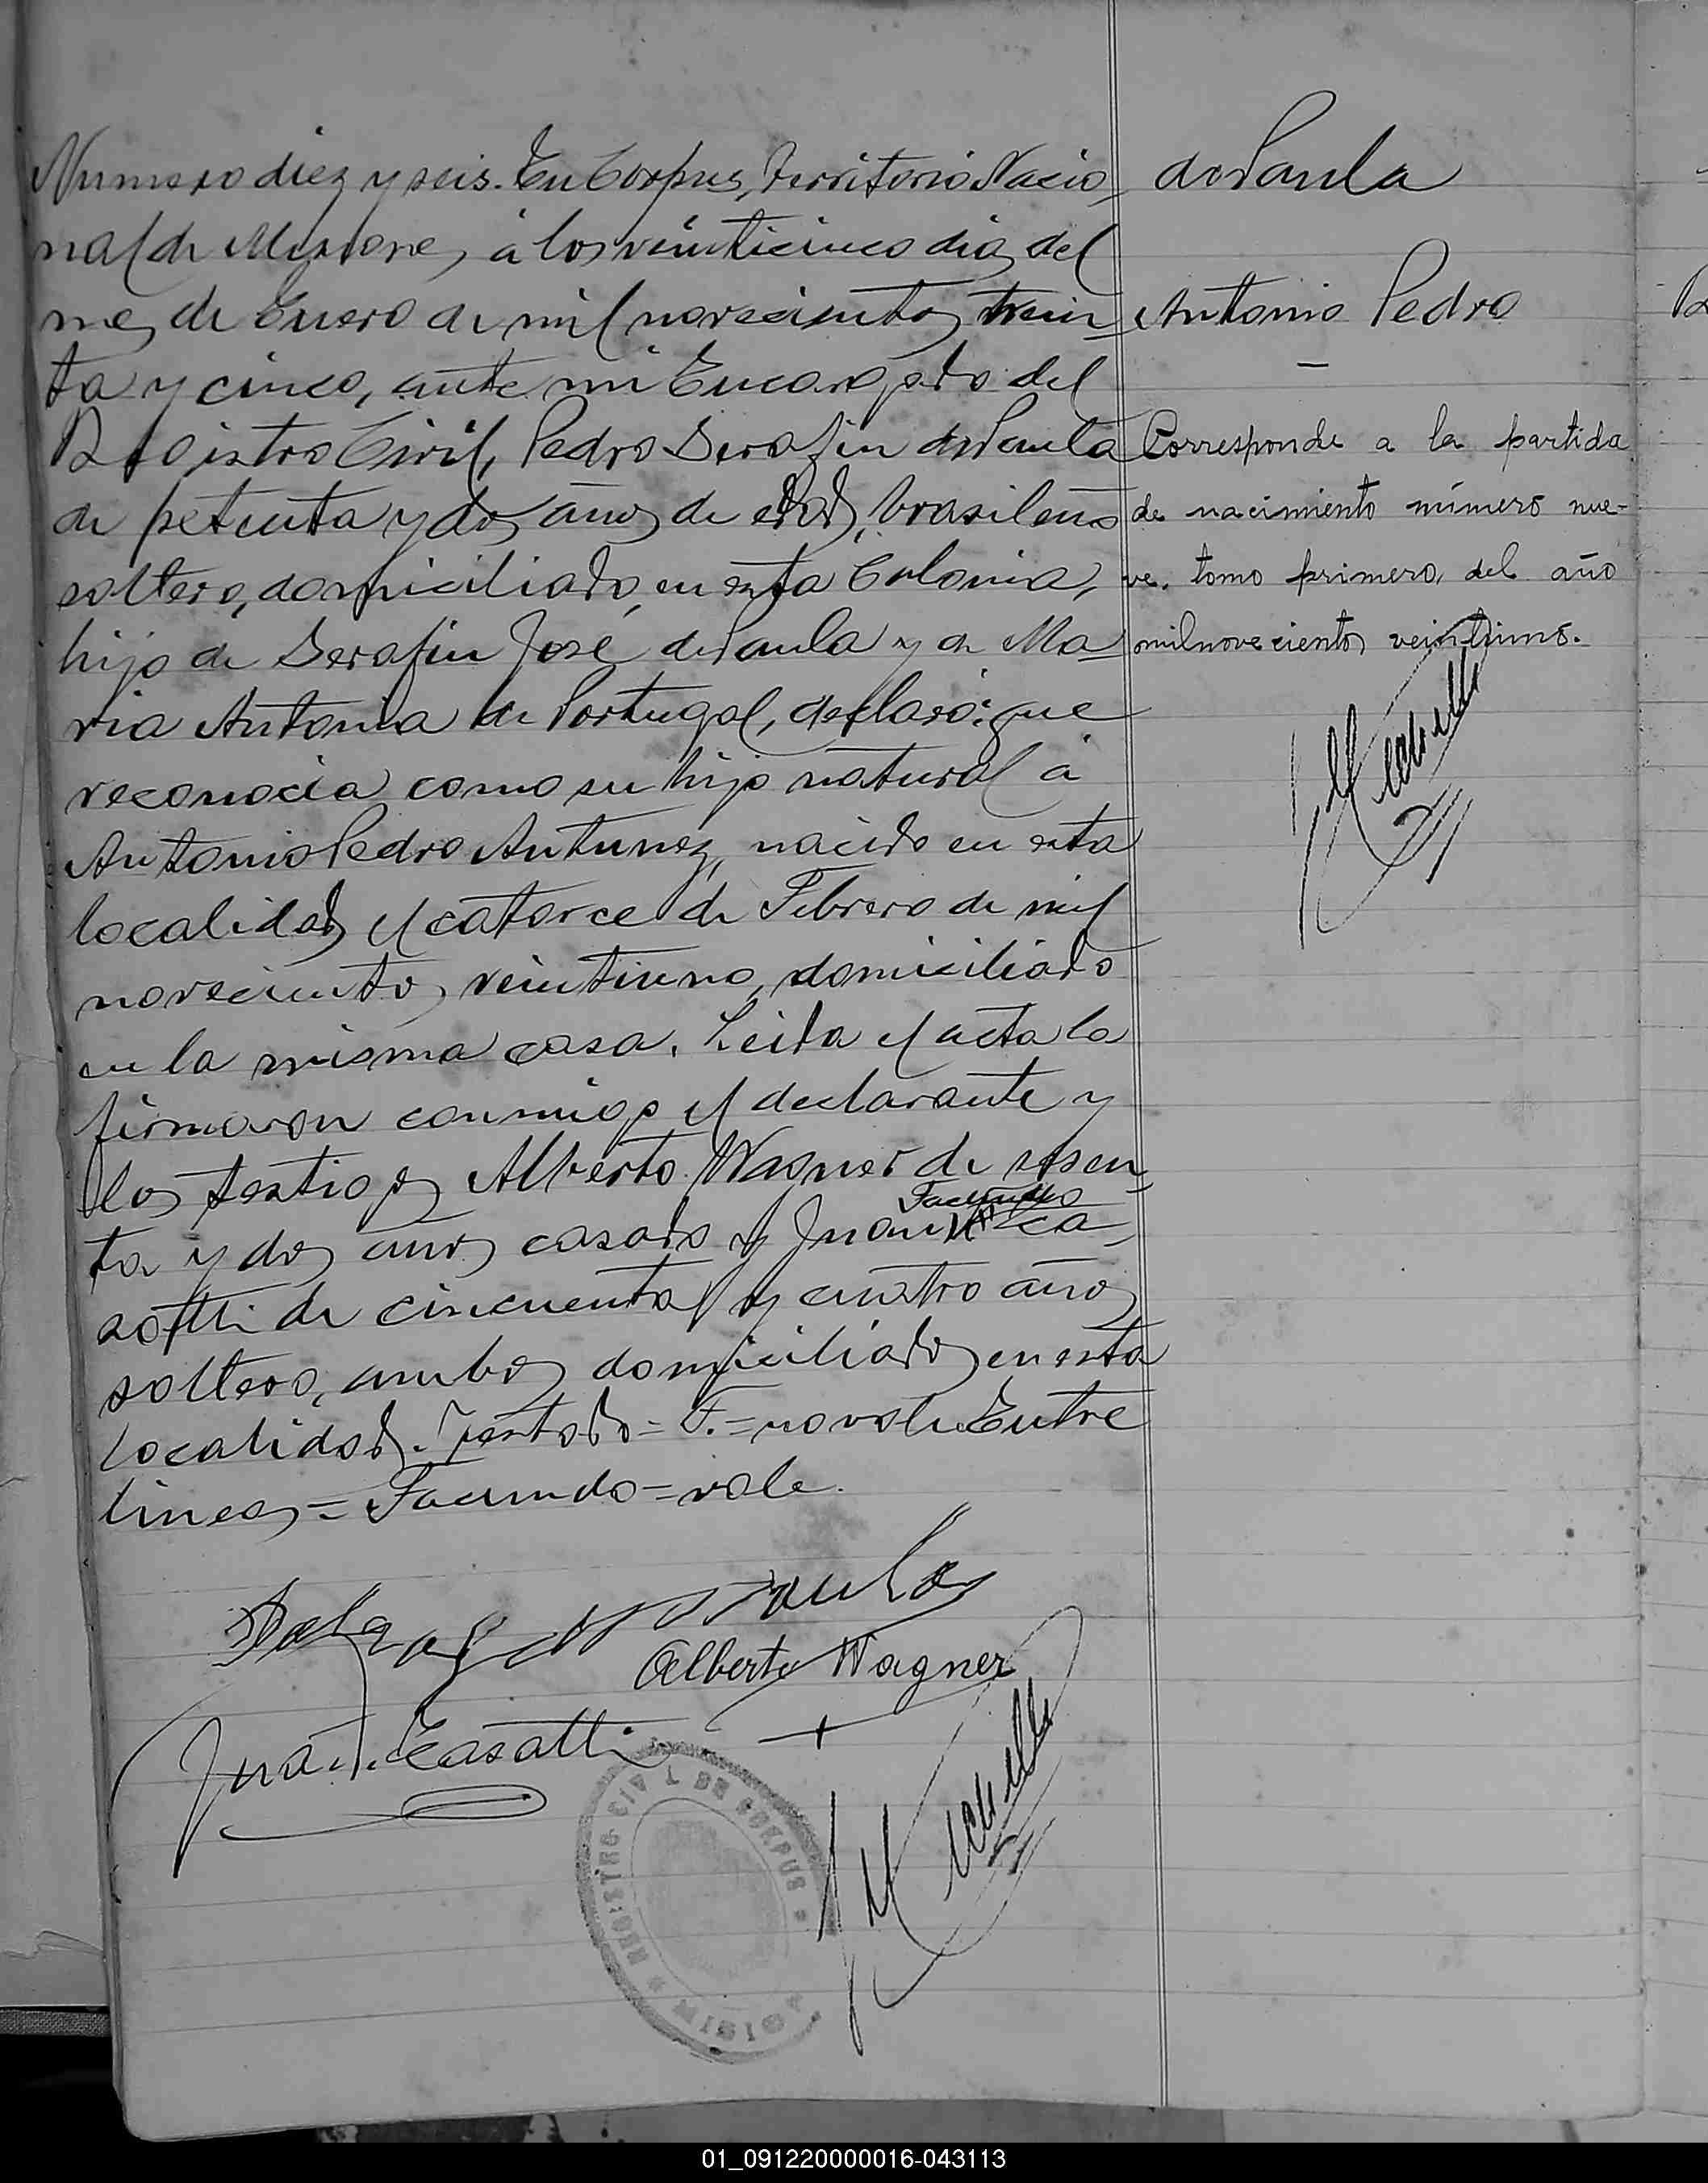 Numero diez y seis. En Corpus, Territorio Nacio
nal de Misiones, á los veinticinco dias del
mes de Enero de mil novecientos trein
ta y cinco, ante mi Encargado del
Registro Civil, Pedro Serafin de Paula
de setenta y dos años de edad, brasileño
soltero, domiciliado en esta Colonia,
hijo de Serafin José de Paula y de Ma
ria Antonia de Portugal, declaró: que
reconocia como su hijo natural á
Antonio Pedro Antunez, nacido en esta
localidad el catorce de Febrero de mil
novecientos veintiuno, domiciliado
en la misma casa. Leida el acta la
firmaron conmigo el declarante y
los testigos Alberto Wagner de sesen
ta y dos años casado y Juan Facundo Ca
satti de cincuenta y cuatro años
soltero, ambos domiciliados en esta
localidad. Testado = F. = no vale Entre
lineas = Facundo = vale.
de Paula
Alberto Wagner
Juan F. Casatti
REGISTRO CIVIL DE CORPUS
de Paula
Antonio Pedro
Corresponde a la partida
de nacimiento número nue-
ve, tomo primero, del año
milnovecientos veintiuno.
01_091220000016-043113